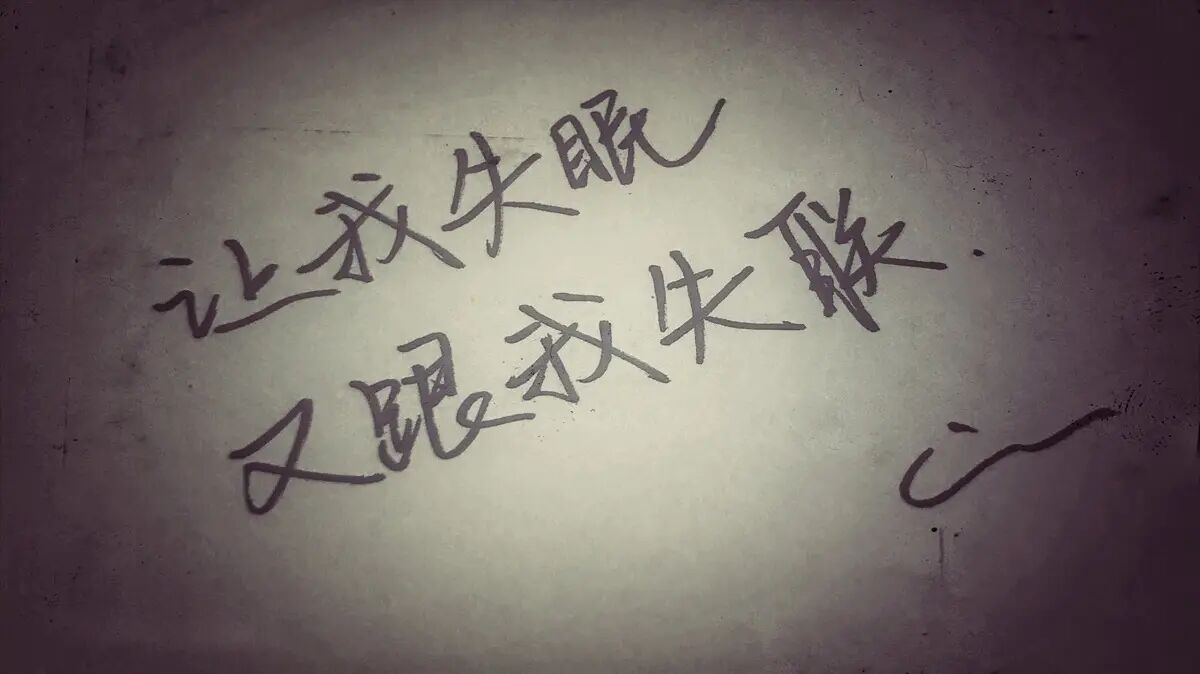 让我失眠
又跟我失联.